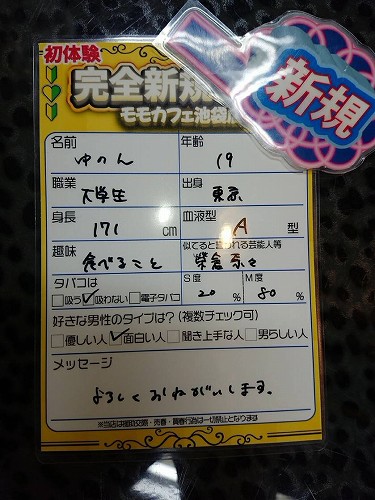 初体験
完全新規
モモカフェ池袋
新規
名前 ゆのん 年齢 19
職業 大学生 出身 東京
身長 171 cm 血液型 A 型
趣味 食べること 似てると言われる芸能人等 榮倉奈々
タバコは S度 M度
□吸う ☑吸わない □電子タバコ 20 % 80 %
好きな男性のタイプは?(複数チェック可)
□優しい人 ☑面白い人 □聞き上手な人 □男らしい人
メッセージ
よろしくおねがいします。
※当店は援助交際・売春・買春行為は一切禁止となります